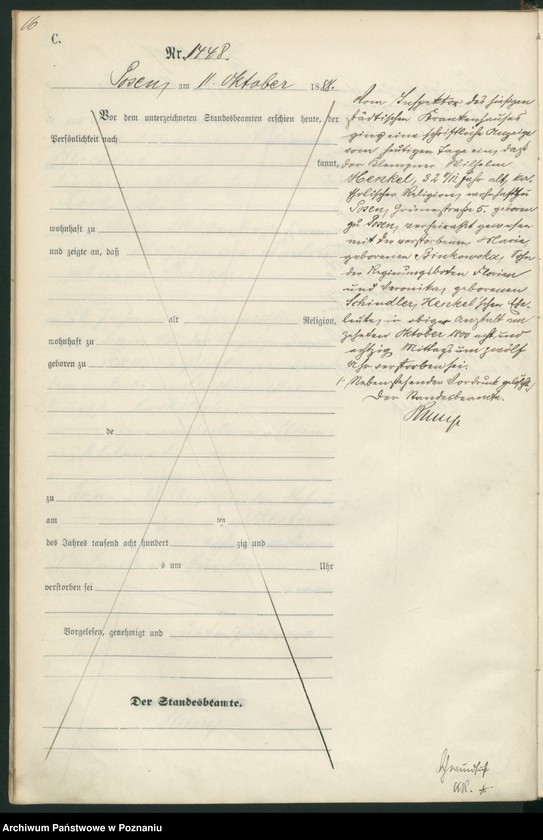 C.
Nr. 1448.
Posen, am 11. Oktober 1888.
Vor dem unterzeichneten Standesbeamten erschien heute, der
Persönlichkeit nach
kannt,
wohnhaft zu
und zeigte an, daß
alt Religion,
wohnhaft zu
geboren zu
de
zu
am ten
des Jahres tausend acht hundert zig und
s um Uhr
verstorben sei
Vorgelesen, genehmigt und
Der Standesbeamte.
Vom Inspektor des hiesigen
städtischen Krankenhauses
ging eine schriftliche Anzeige
vom heutigen Tage ein, daß
der Klempner Wilhelm
Henkel, 32 Jahr alt, kat-
tholischer Religion, wohnhaft zu
Posen, 5. geboren
zu Posen, verheirathet gewesen
mit der verstorbenen Maria
geborenen Binkowska, Sohn
der Regierungsboten Florian
und Veronika, geborenen
Schindler, Henkel'schen Ehe-
leute, in obiger Anstalt am
zehnten Oktober 1800 acht und
achtzig Mittags um zwölf
Uhr verstorben sei.
Nebenstehender Vordruck gelöscht.
Der Standesbeamte.
Archiwum Państwowe w Poznaniu